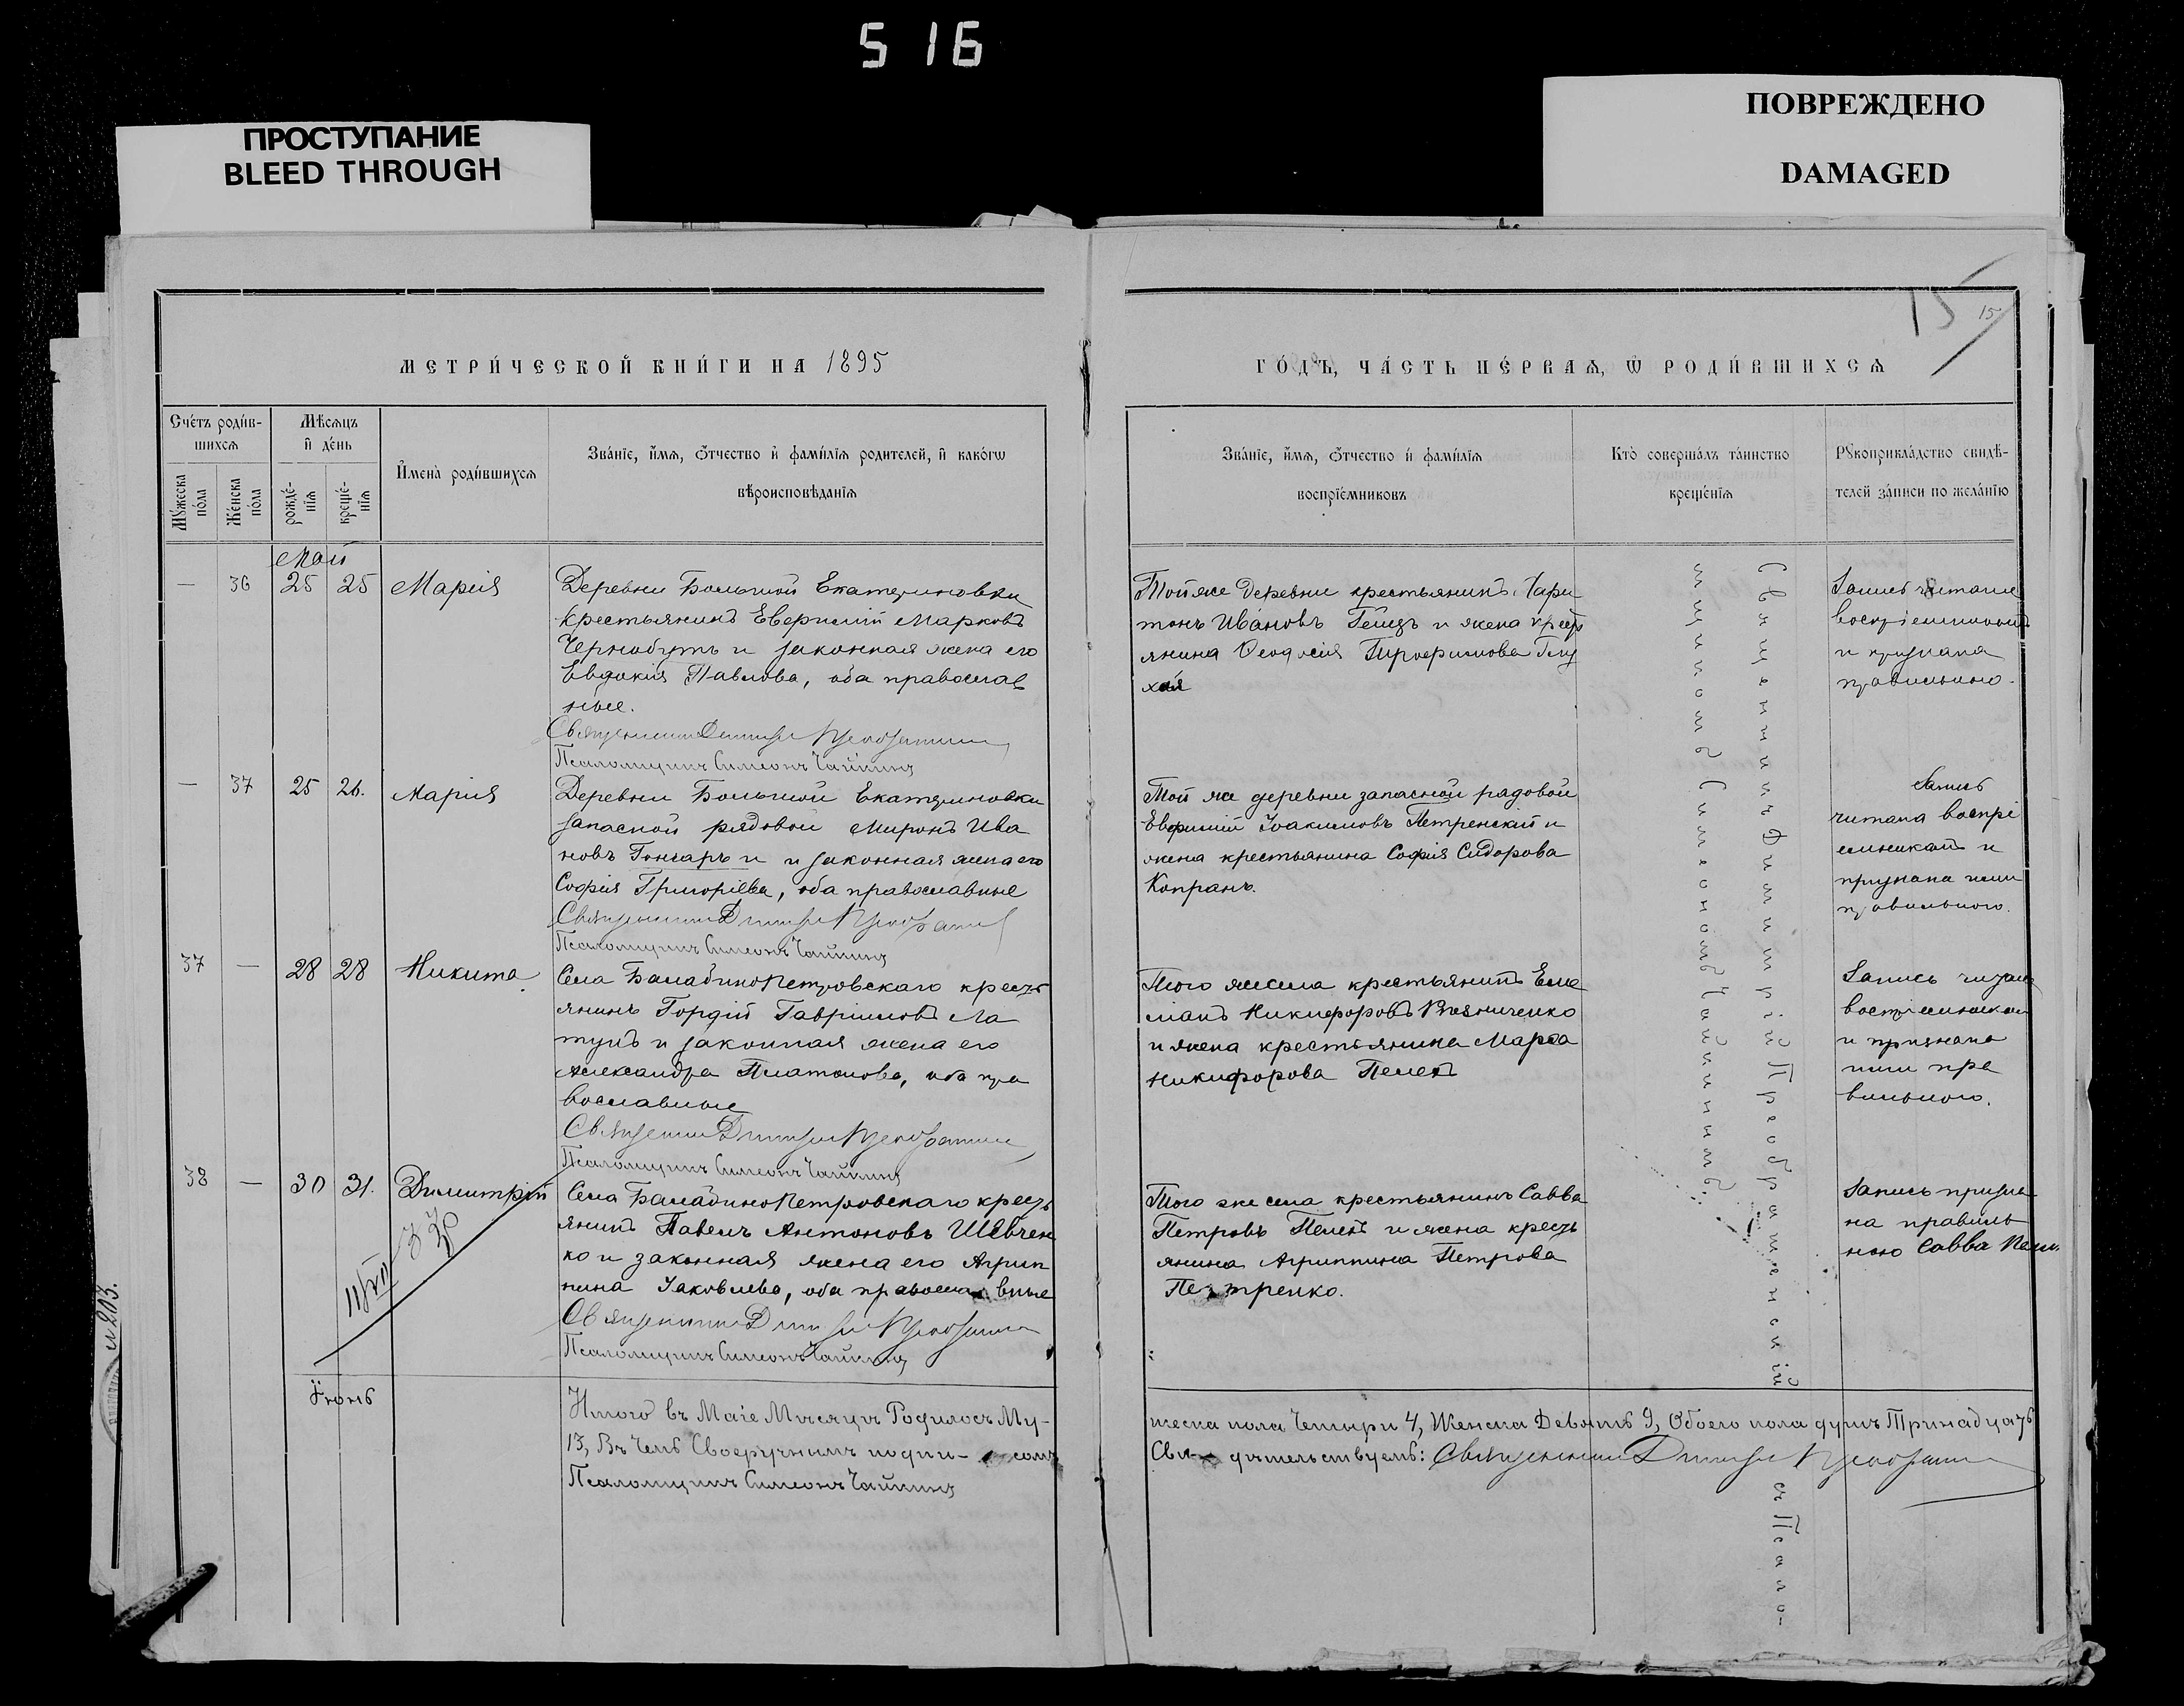 516
ПРОСТУПАНИЕ
BLEED THROUGH
ПОВРЕЖДЕНО
DAMAGED
15
15
МЕТРИ́ЧЕСКОЙ КНИ́ГИ НА 1895
ГО́ДЪ, ЧА́СТЬ ПЕ́РВАѦ, Ѡ РОДИ́ВШИХСѦ
Сче́тъ роди́в-
шихсѧ
Мѣ́сѧцъ
и҆ де́нь
Мꙋ́жеска
по́ла
Же́нска
по́ла
рожде́-
нїѧ
креще́-
нїѧ
И҆мена̀ роди́вшихсѧ
Зва́нїе, и҆́мѧ, ѻ҆́тчество и҆ фами́лїѧ родителей, и҆ како́гѡ
вѣроисповѣ́данїѧ
Зва́нїе, и҆́мѧ, ѻ҆́тчество и҆ фами́лїѧ
воспрїе́мниковъ
Кто̀ соверша́лъ та́инство
креще́нїѧ
Рꙋкоприкла́дство свидѣ́-
телей за́писи по жела́нїю
Май
— 36 25 25 Марія
Деревни Большой Екатериновки
крестьянинъ Евфимій Марковъ
Чернобугъ и законная жена его
Евдокія Павлова, оба православ
ные.
Священникъ Димитрій Преображенскій
Псаломщикъ Симеонъ Чайкинъ
Той же деревни крестьянинъ Хари
тонъ Ивановъ и жена крест
янина Ѳеодосія Трофимова
Запись читана
воспріемникамъ
и признана
правильною.
— 37 25 26. Марія
Деревни Большой Екатериновки
запасной рядовой Миронъ Ива
новъ Гончаръ и и законная жена его
Софія Григоріева, оба православные
Священникъ Димитрій Преображенскій
Псаломщикъ Симеонъ Чайкинъ
Той же деревни запасной рядовой
Евфимій Іоакимовъ Петренскій и
жена крестьянина Софія Сидорова
Копранъ.
Запись
читана воспрі
емникамъ и
признана ими
правильною.
37 — 28 28 Никита
Села БалабиноПетровскаго крестъ
янинъ Гордій Гавріиловъ Ла
тунъ и законная жена его
Александра Платонова, оба пра
вославные
Священникъ Димитрій Преображенскій
Псаломщикъ Симеонъ Чайкинъ
Того же села крестьянинъ Еме
ліанъ Никифоровъ
и жена крестьянина Марѳа
Никифорова Пелехъ
Запись читана
воспріемникамъ
и признана
ими пра
вильною.
38 — 30 31. Димитрій
Села БалабиноПетровскаго кресть
янинъ Павелъ Антоновъ Шевчен
ко и законная жена его Агрип
пина Іаковлева, оба православные
Священникъ Димитрій Преображенскій
Псаломщикъ Симеонъ Чайкинъ
Того же села крестьянинъ Савва
Петровъ Пелехъ и жена кресть
янина Агриппина Петрова
Петренко.
Запись призна
на правиль
ною Савва
Священникъ Димитрій Преображенскій съ Псало-
мщикомъ Симеономъ Чайкинымъ.
л 203.
Іюнь
Итого въ Маіе Мѣсяцѣ Родилось Му-
жеска пола Четыри 4, Женска Девять 9, Обоего пола душъ Тринадцать
13, Въ Чемъ Своеручнымъ подпи- сомъ
Сви- дѣтельствуемъ: Священникъ Димитрій Преображенскій
Псаломщикъ Симеонъ Чайкинъ